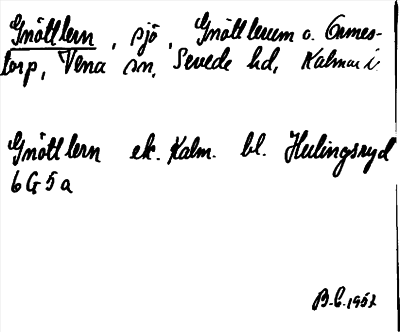 Gnöttlern, sjö, Gnöttlerum o. Ormes-
torp, Vena sn, Sevede hd, Kalmar i
Gnöttlern ek. Kalm. bl. Hulingsryd
6G5a
B.E. 1957